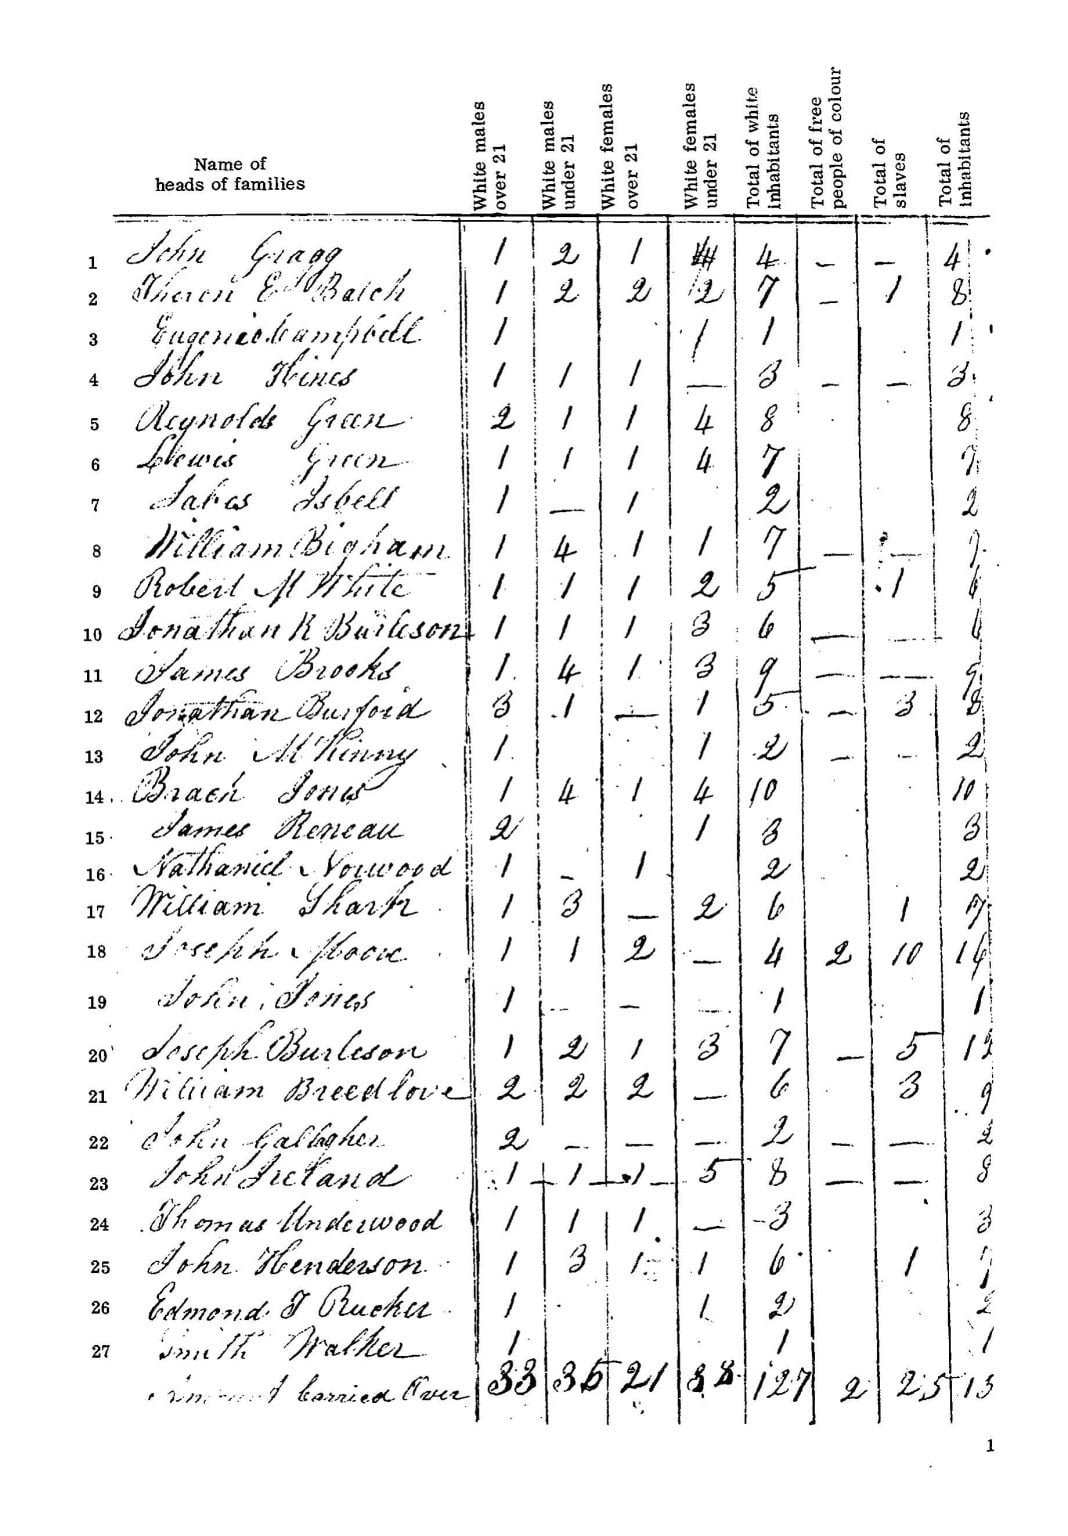 Name of heads of families | White males over 21 | White males under 21 | White females over 21 | White females under 21 | Total of white inhabitants | Total of free people of colour | Total of slaves | Total of inhabitants
1 John Gragg 1 2 1 4 – – 4
2 Theron E Balch 1 2 2 2 7 – 1 8
3 Eugenio Campbell 1 1 1 1
4 John Hines 1 1 1 — 3 – – 3
5 Reynolds Green 2 1 1 4 8 8
6 Lewis Green 1 1 1 4 7 7
7 Jabes Isbell 1 — 1 2 2
8 William Bigham 1 4 1 1 7 — — 7
9 Robert M White 1 1 1 2 5 1 6
10 Jonathan K Burleson 1 1 1 3 6 — — 6
11 James Brooks 1 4 1 3 9 — — 9
12 Jonathan Burford 3 1 — 1 5 – 3 8
13 John McKinny 1 1 2 – – 2
14 Jones 1 4 1 4 10 10
15 James Reneau 2 1 3 3
16 Nathaniel Norwood 1 – 1 2 2
17 William Shark 1 3 — 2 6 1 7
18 Joseph Moore 1 1 2 — 4 2 10 16
19 John Jones 1 – – – 1 1
20 Joseph Burleson 1 2 1 3 7 — 5 12
21 William Breedlove 2 2 2 — 6 3 9
22 John Gallagher 2 — — — 2 — — 2
23 John Ireland 1 1 1 5 8 — — 8
24 Thomas Underwood 1 1 1 — 3 3
25 John Henderson 1 3 1 1 6 1 7
26 Edmond T Rucker 1 1 2 2
27 Smith Walker 1 1 1
Carried Over 33 35 21 38 127 2 25 15
1